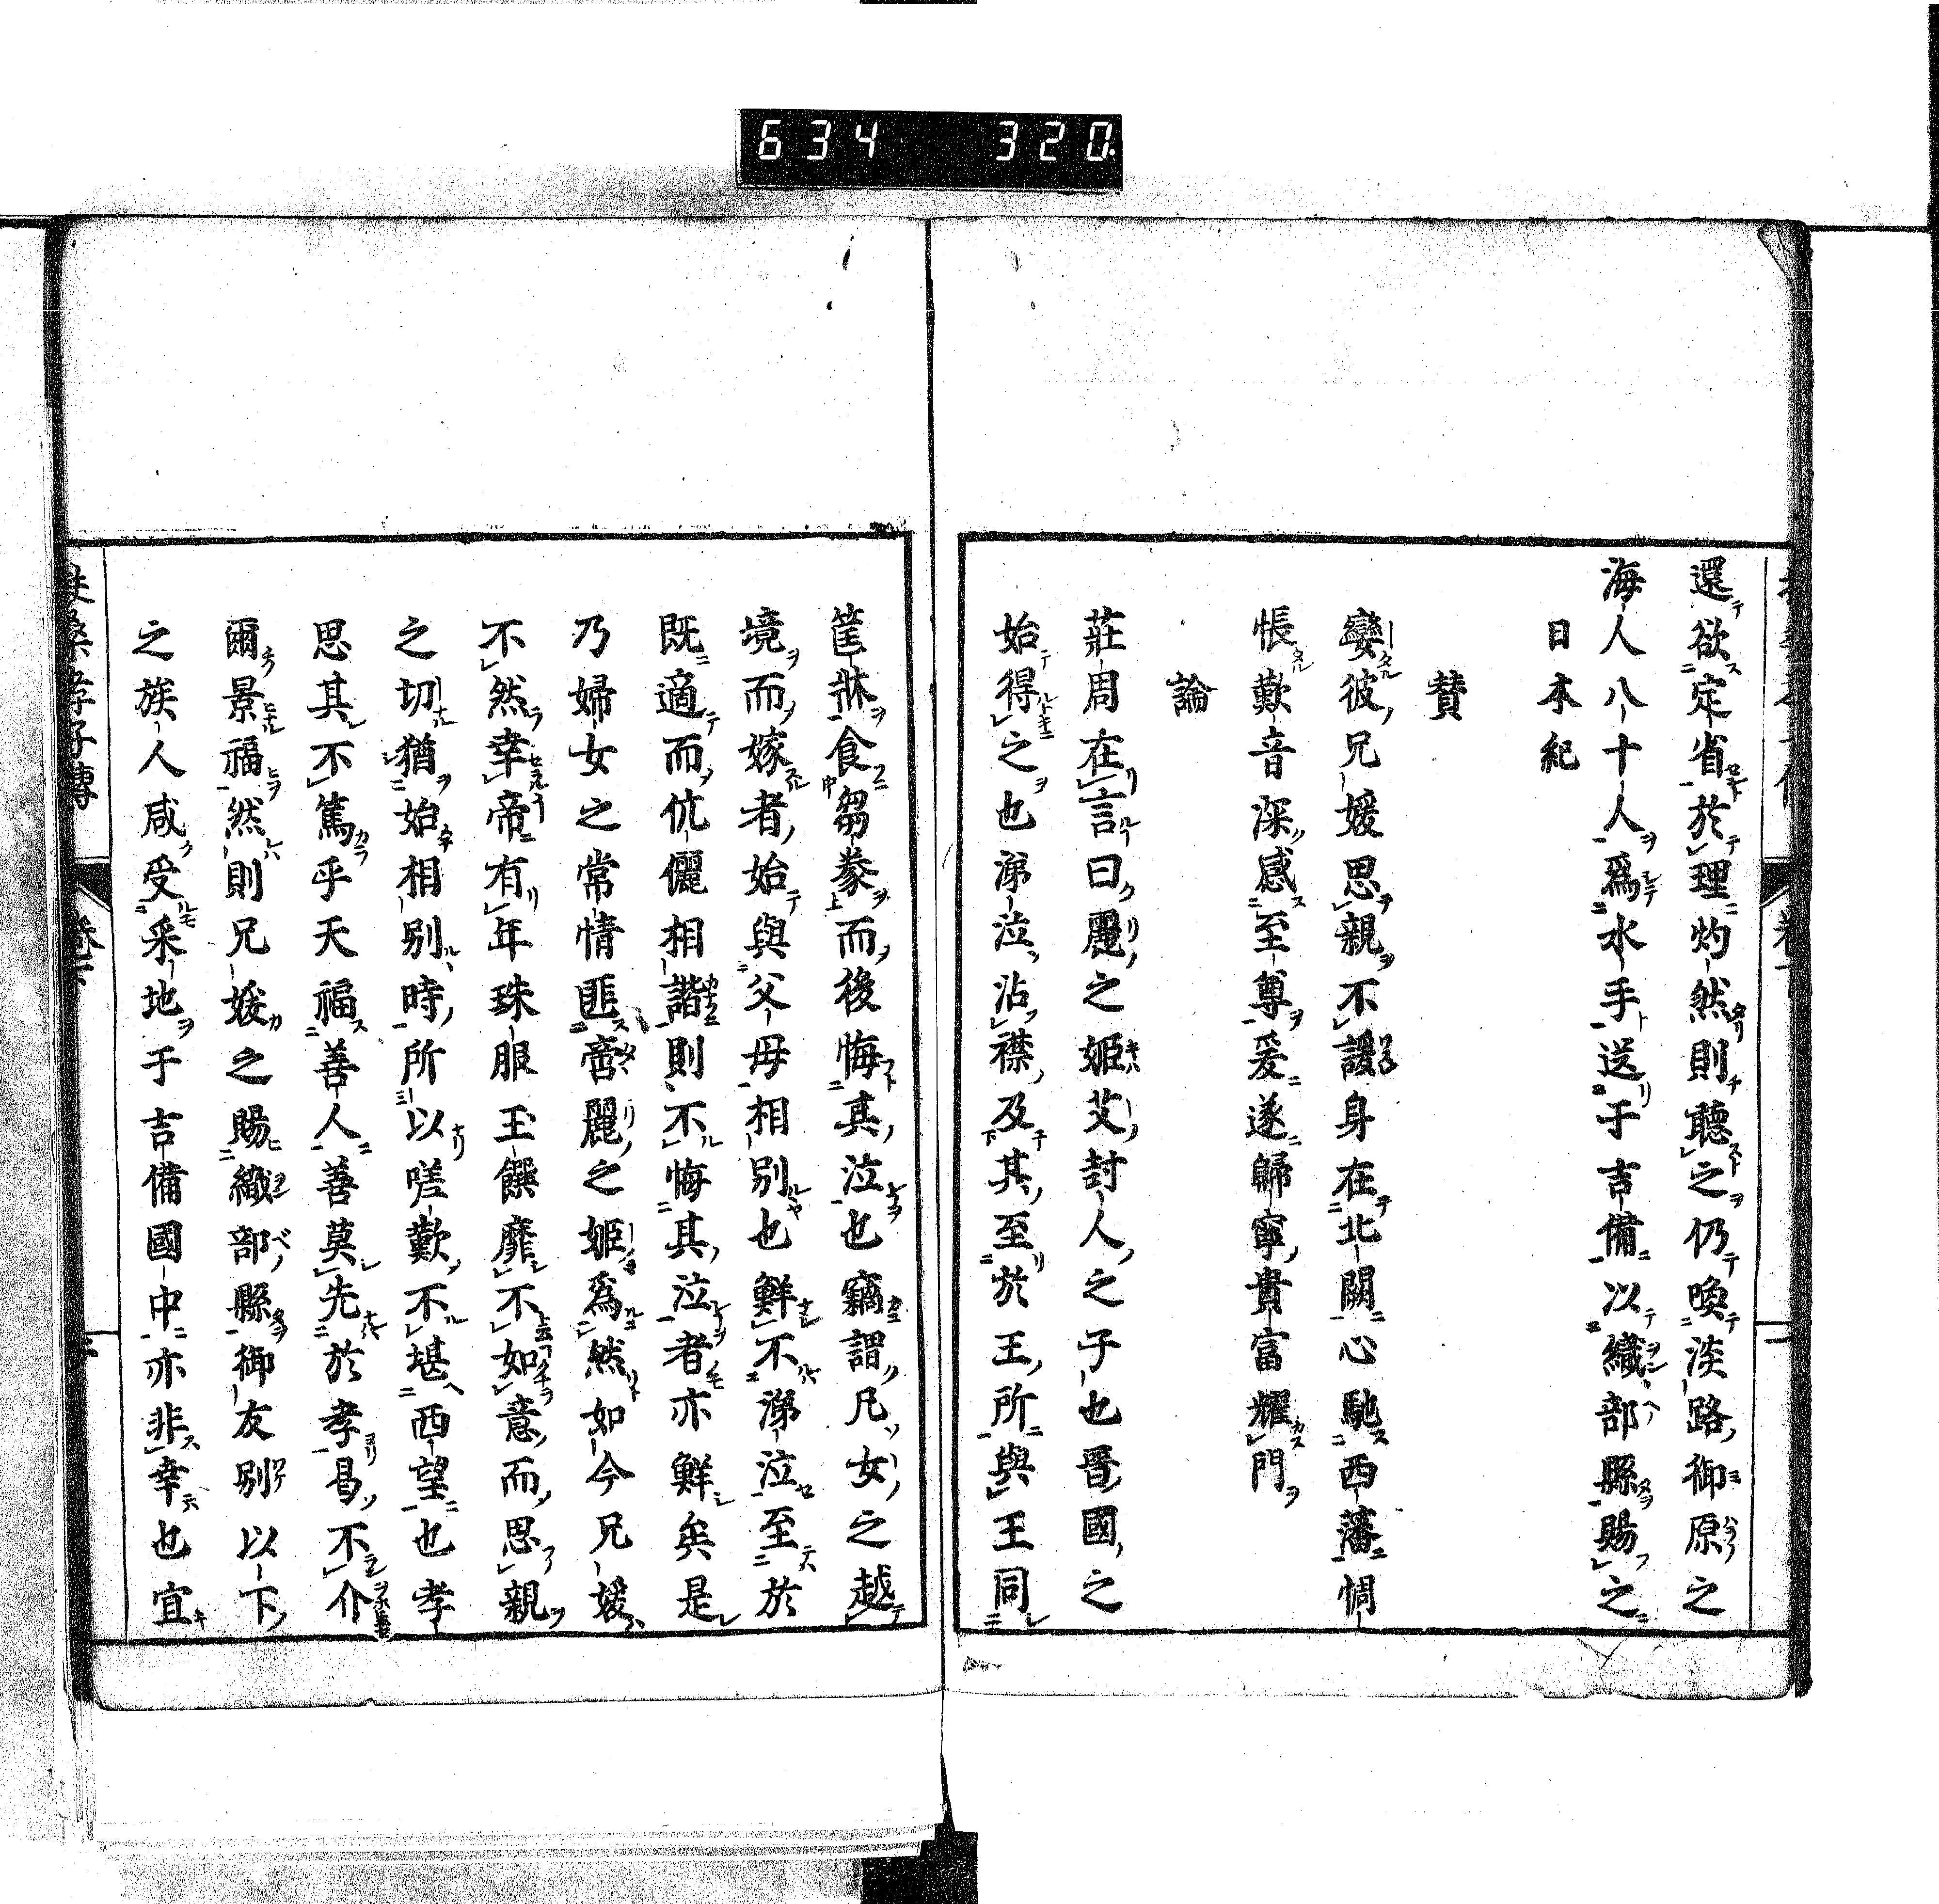 634 320
還欲定省於理灼然則聽之仍喚淡路御原之
海人八十人爲水手送于吉備以織部縣賜之
日本紀
賛
孌彼兄媛思親不諼身在北闕心馳西藩惆
悵歎音深感至尊爰遂歸寧貴富耀門
論
莊周在言曰麗之姬艾封人之子也晉國之
始得之也涕泣沾襟及其至於王所與王同
筐牀食芻豢而後悔其泣也竊謂凡女之越
境而嫁者始與父母相別也鮮不涕泣至於
既適而伉儷相諧則不悔其泣者亦鮮矣是
乃婦女之常情匪啻麗之姬爲然如今兄媛
不然幸帝有年珠服玉饌靡不如意而思親
之切猶始相別時所以嗟歎不堪西望也孝
思其不篤乎天福善人善莫先於孝曷不介
爾景福然則兄媛之賜織部縣御友別以下
之族人咸受采地于吉備國中亦非幸也宜
扶桑孝子傳